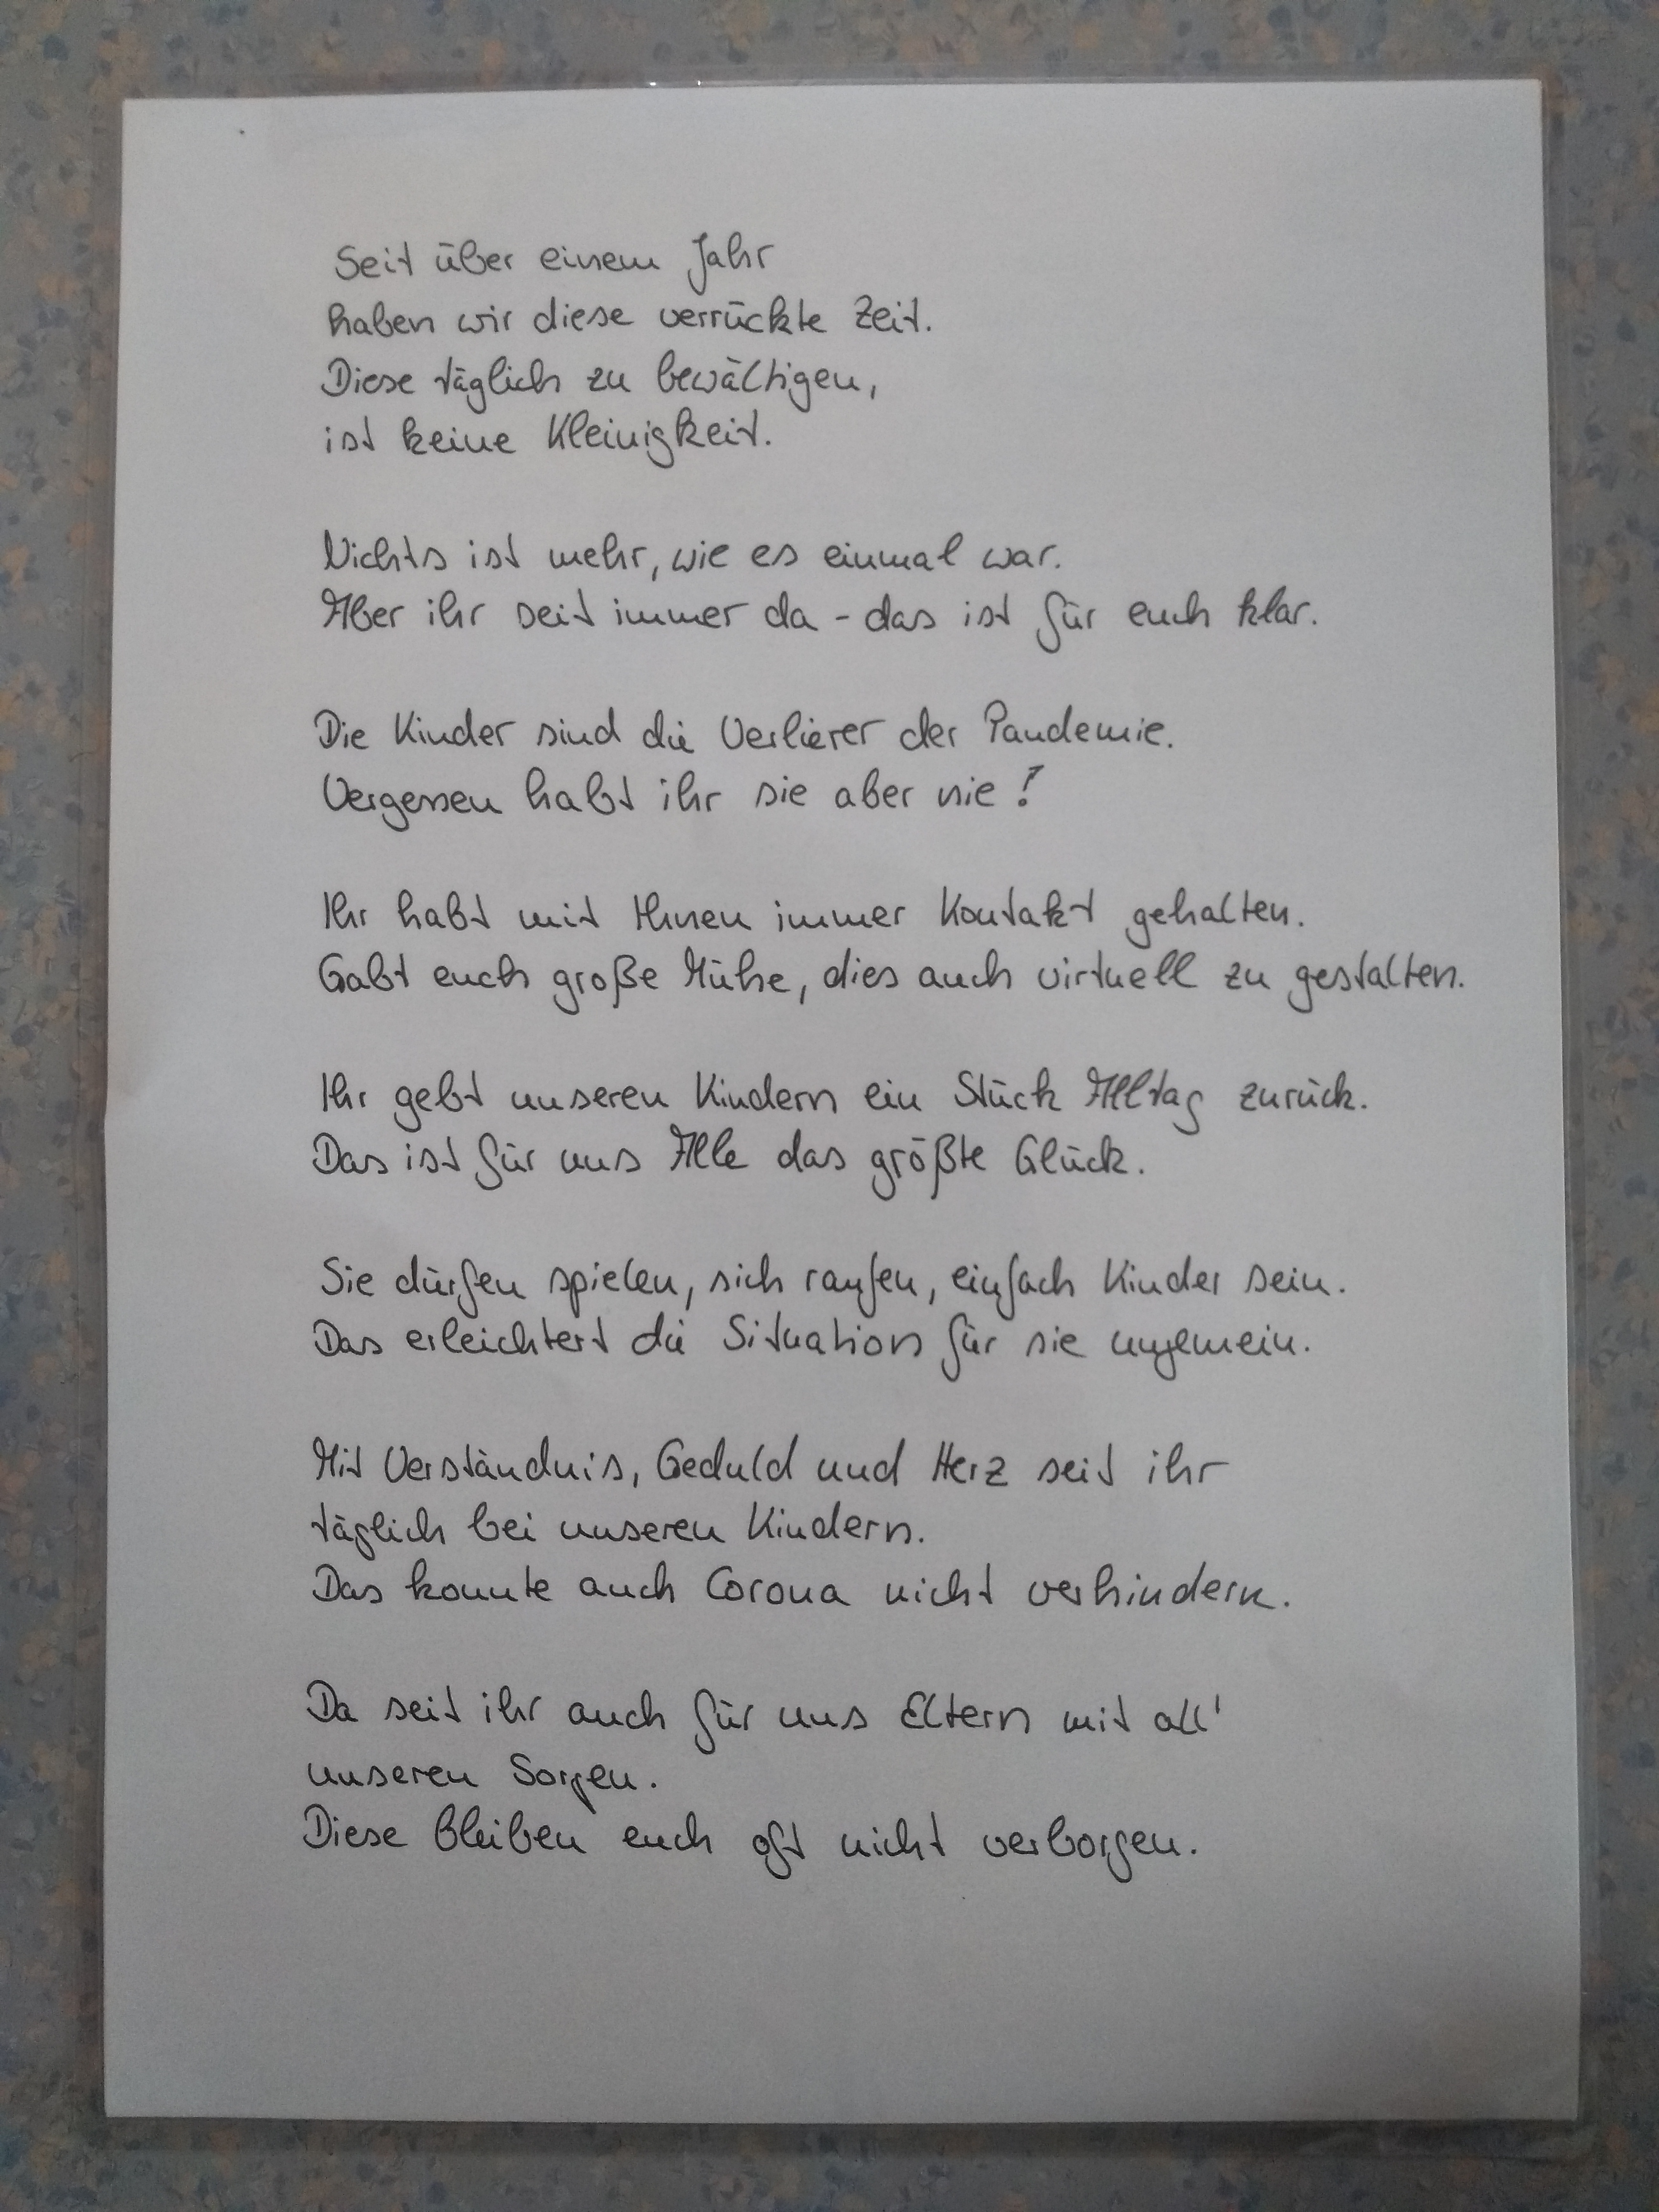 Seit über einem Jahr
haben wir diese verrückte Zeit.
Diese täglich zu bewältigen,
ist keine Kleinigkeit.
Nichts ist mehr, wie es einmal war.
Aber ihr seit immer da - das ist für euch klar.
Die Kinder sind die Verlierer der Pandemie.
Vergessen habt ihr sie aber nie!
Ihr habt mit Ihnen immer Kontakt gehalten.
Gabt euch große Mühe, dies auch virtuell zu gestalten.
Ihr gebt unseren Kindern ein Stück Alltag zurück.
Das ist für uns Alle das größte Glück.
Sie dürfen spielen, sich raufen, einfach Kinder sein.
Das erleichtert die Situation für sie ungemein.
Mit Verständnis, Geduld und Herz seit ihr
täglich bei unseren Kindern.
Das konnte auch Corona nicht verhindern.
Da seit ihr auch für uns Eltern mit all'
unseren Sorgen.
Diese bleiben euch oft nicht verborgen.